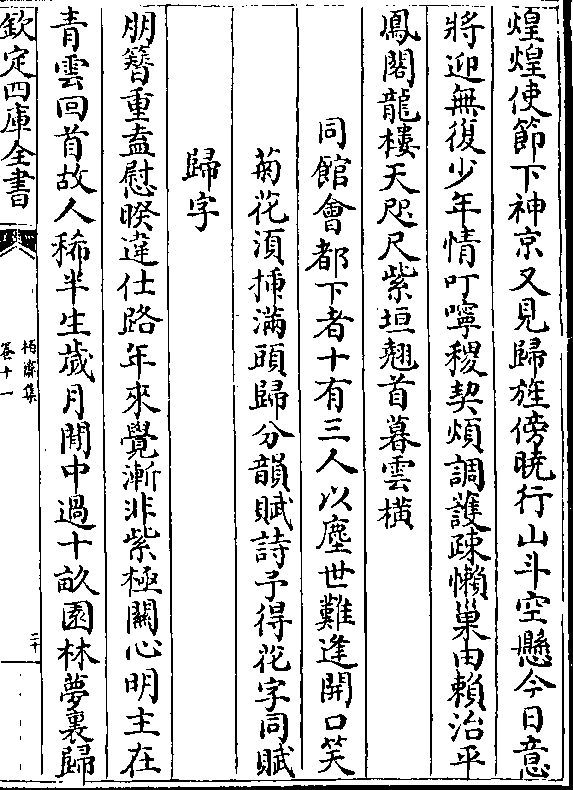 煌煌使節下神京又見歸旌傍曉行山斗空懸今日意
將迎無復少年情叮嚀稷契煩調護疎懶巢由賴治平
鳳閣龍樓天咫尺紫垣翹首暮雲橫
同館會都下者十有三人以塵世難逢開口笑
菊花須揷滿頭歸分韻賦詩予得花字同賦
歸字
朋簪重盍慰暌違仕路年來覺漸非紫極關心明主在
青雲回首故人稀半生歲月閒中過十畝園林夢裏歸
欽定四庫全書
栢齋集
卷十一
三十